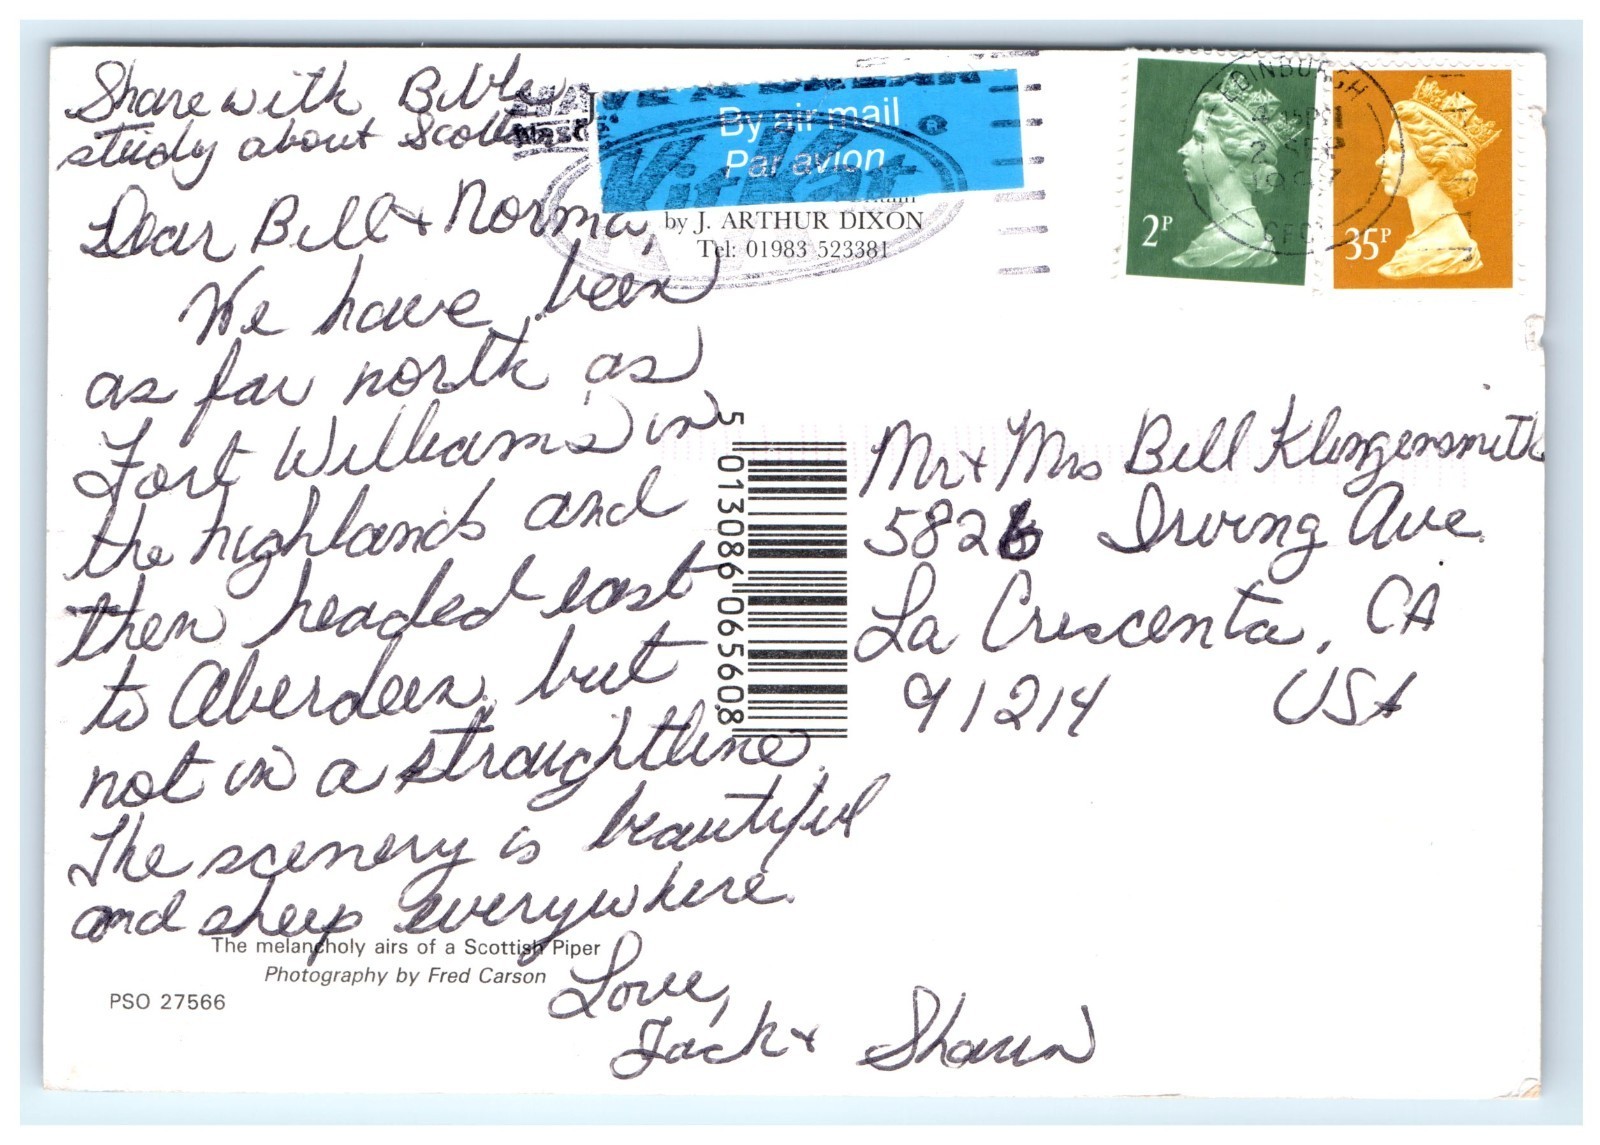 Share with Bible
study about Scott
Dear Bill & Norma,
We have been
as far north as
Fort Williams in
the highlands and
then headed east
to Aberdeen, but
not in a straightline.
The scenery is beautiful
and sheep everywhere.
Love,
Jack &
The melancholy airs of a Scottish Piper
Photography by Fred Carson
PSO 27566
By air mail
Par avion
®
by J. ARTHUR DIXON
Tel: 01983 523381
5 013086 065608
EDINBURGH
2P
35P
Mr & Mrs Bill Klingensmith
5826 Irving Ave.
La Crescenta, CA
91214 USA